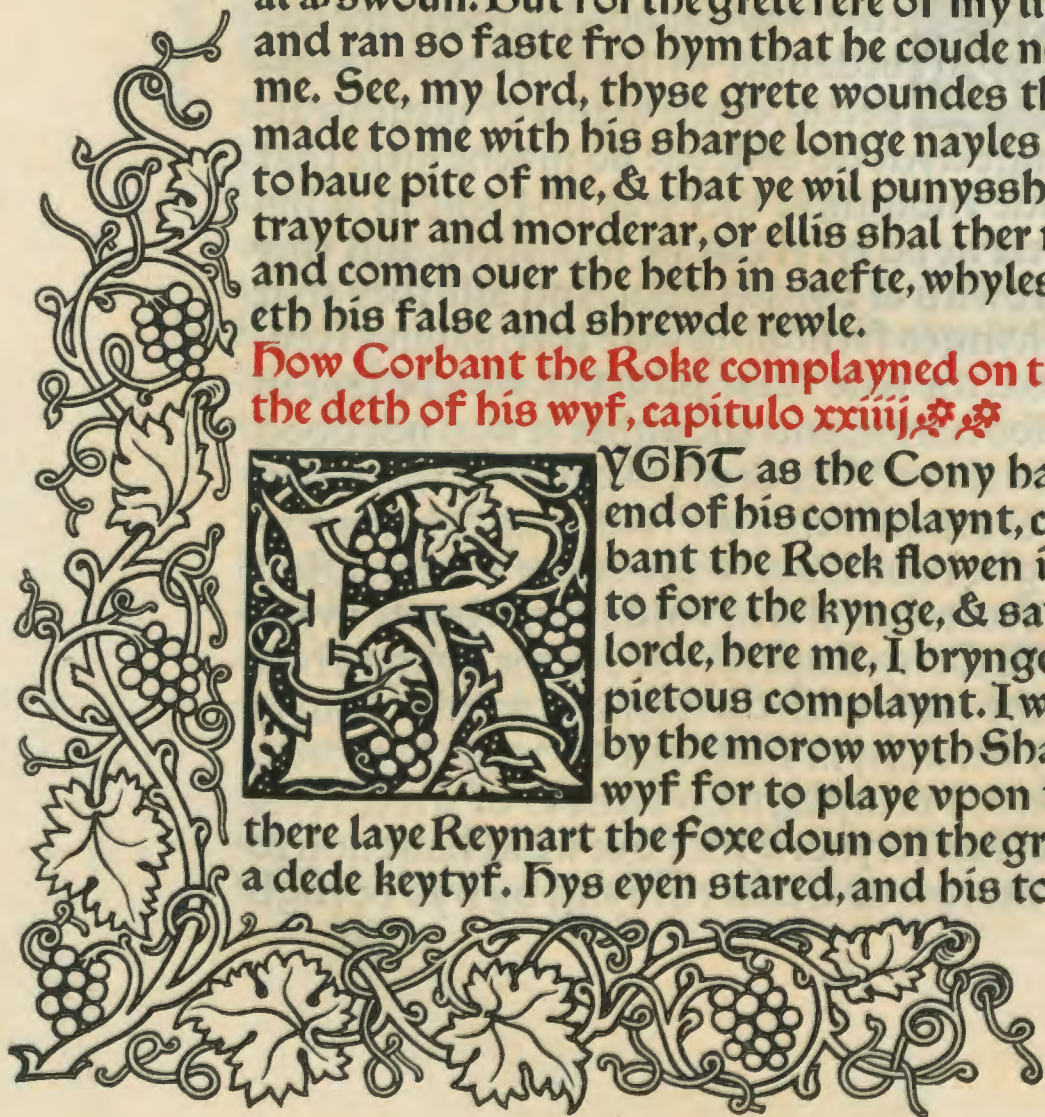 at a swoun. But for the grete fere of my
and ran so faste fro hym that he coude
me. See, my lord, thyse grete woundes
made to me with his sharpe longe nayles
to haue pite of me, & that ye wil punyssh
traytour and morderar, or ellis shal ther
and comen ouer the heth in saefte, whyles
eth his false and shrewde rewle.
How Corbant the Roke complayned on
the deth of his wyf, capitulo xxiiij
RYGHT as the Cony
end of his complaynt,
bant the Roek flowen
to fore the kynge, &
lorde, here me, I brynge
pietous complaynt. I
by the morow wyth
wyf for to playe vpon
there laye Reynart the foxe doun on the
a dede keytyf. Hys eyen stared, and his